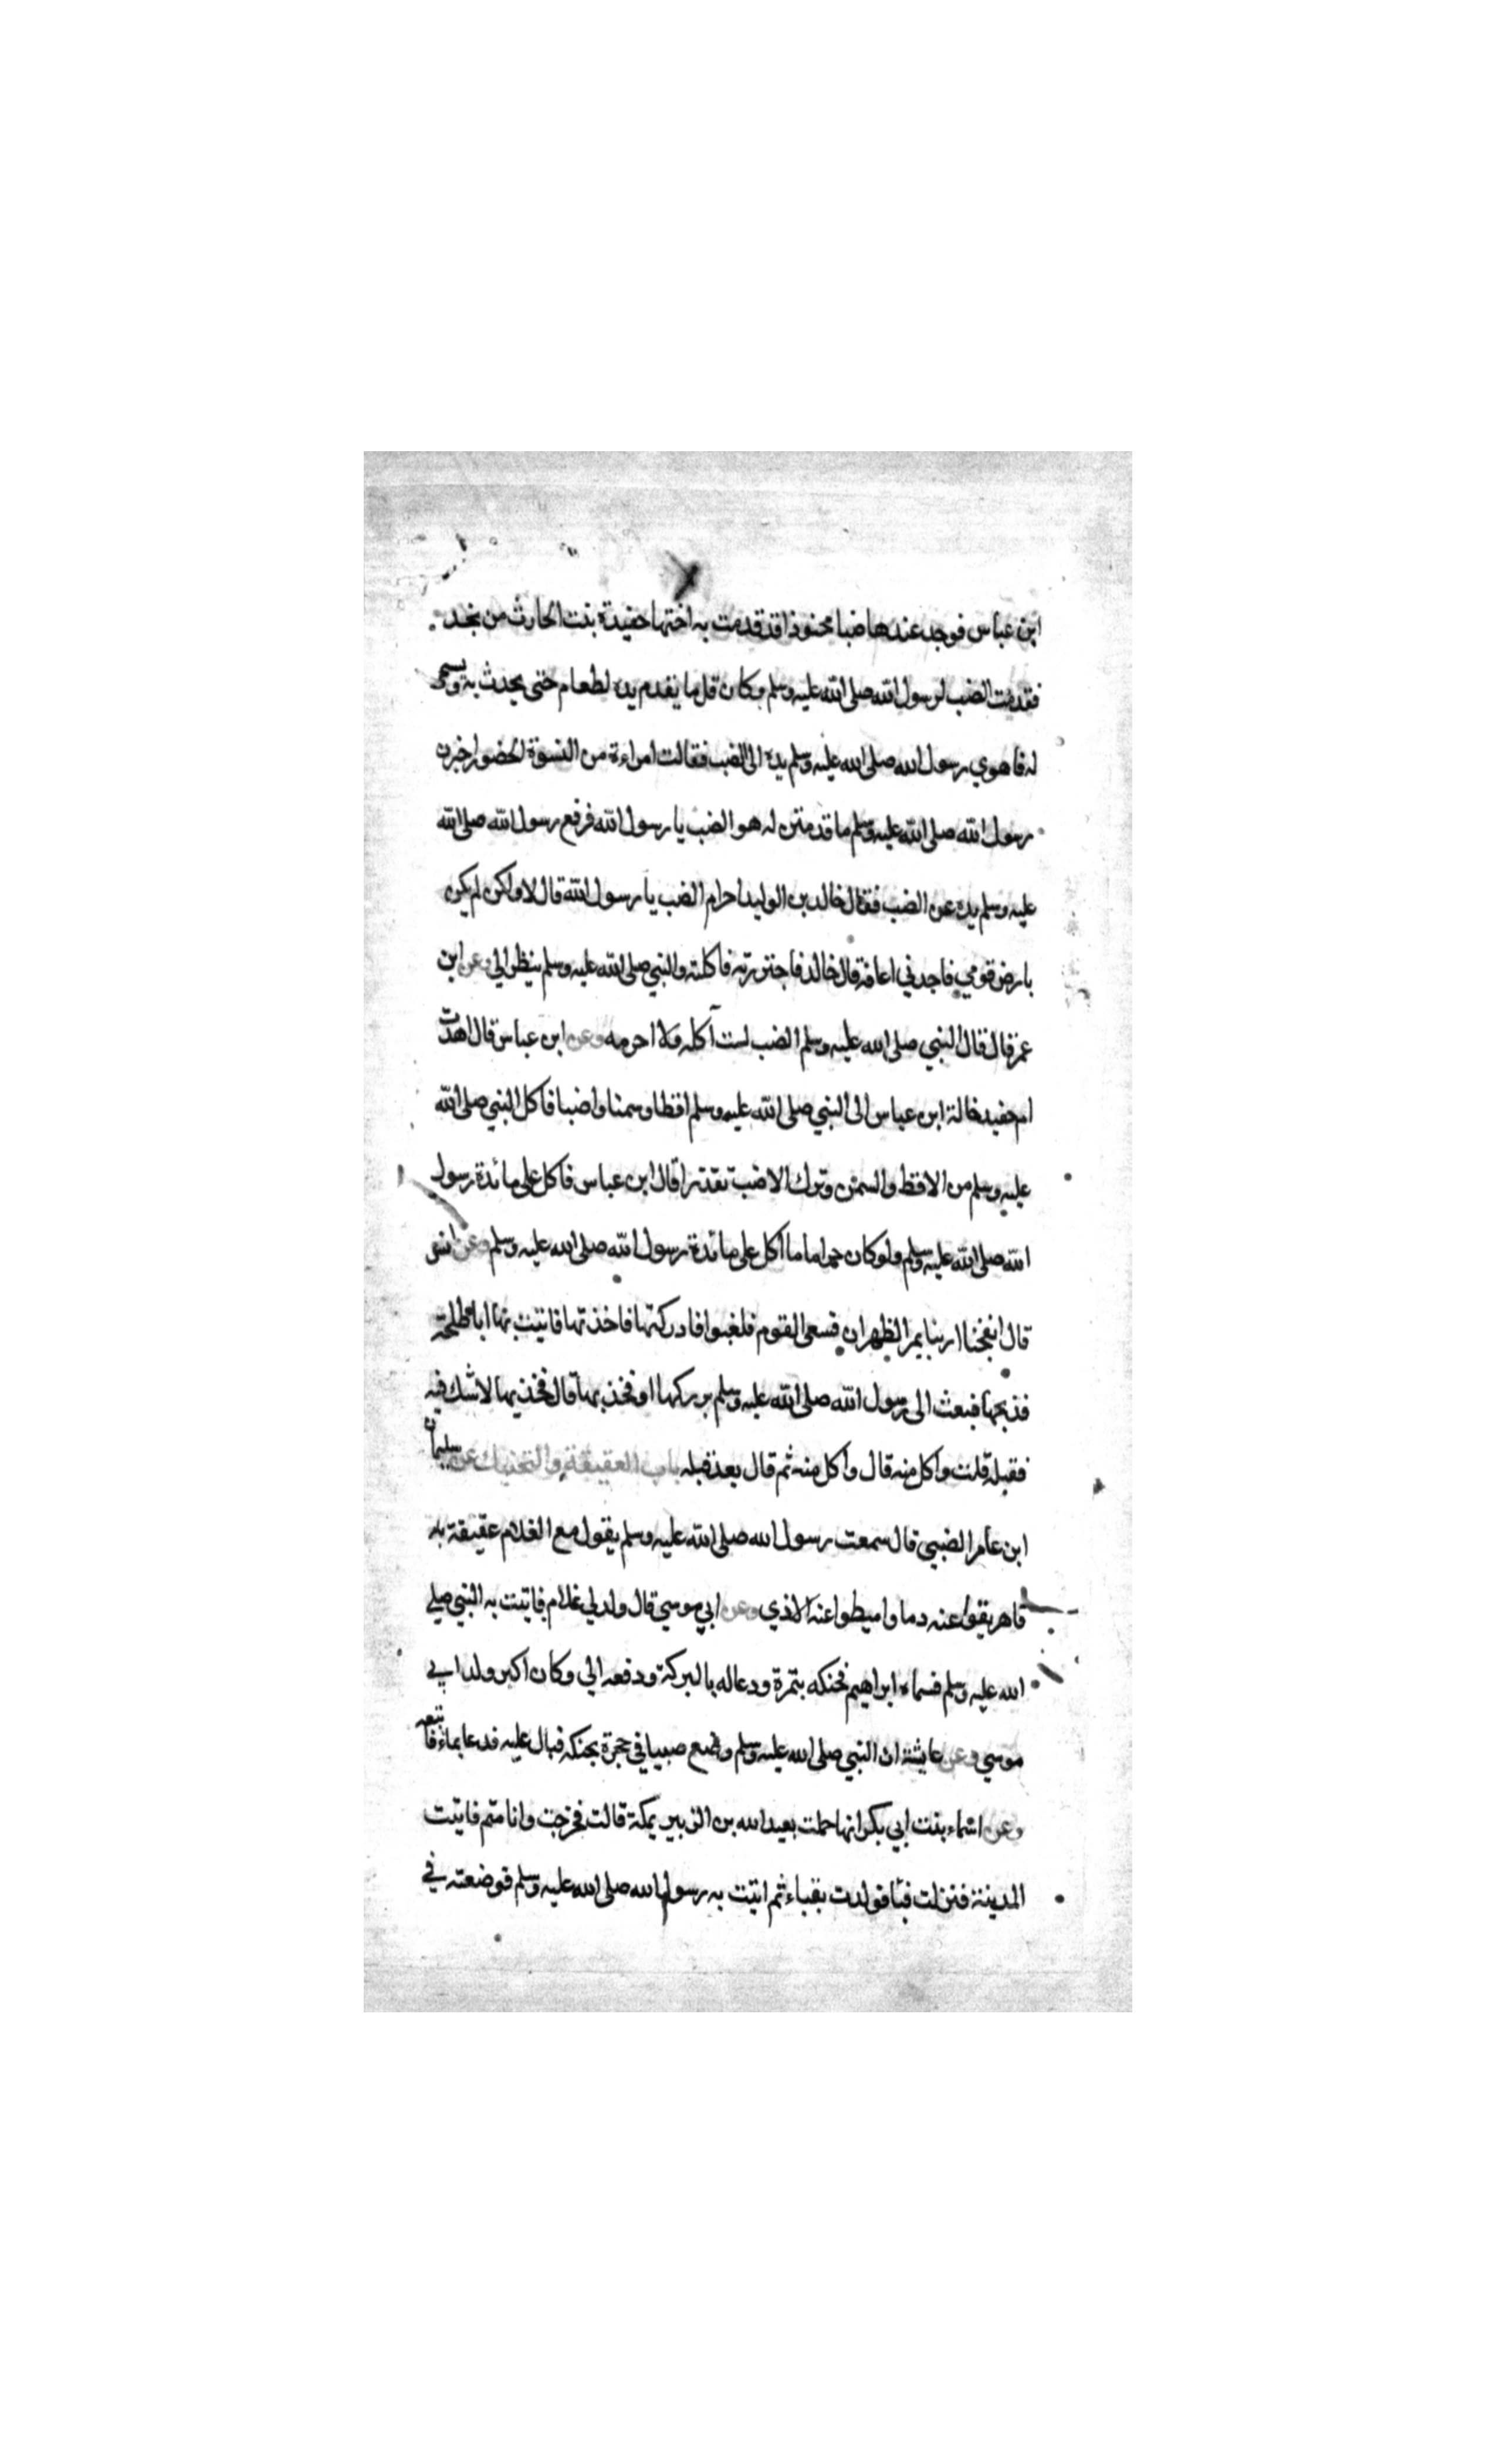 ابن عباس فوجد عندها ضبا محنوذا قد قدمت به اختها حفيدة بنت الحارث من نجد
فقدمت الضب لرسول الله صلى الله عليه وسلم وكان قل ما يقدم يده لطعام حتى يحدث به ويسمى
له فاهوي رسول الله صلى الله عليه وسلم يده الى الضب فقالت امراءة من النسوة الحضور اخبرن
رسول الله صلى الله عليه وسلم ما قدمتن له هو الضب يا رسول الله فرفع رسول الله صلى الله
عليه وسلم يده عن الضب فقال خالد بن الوليد احرام الضب يا رسول الله قال لا ولكن لم يكن
بارض قومي فاجدني اعافه قال خالد فاجتررته فاكلته والنبي صلى الله عليه وسلم ينظر الي وعن ابن
عمر قال قال النبي صلى الله عليه وسلم الضب لست آكله ولا احرمه وعن ابن عباس قال اهدت
ام حفيد خالة ابن عباس الى النبي صلى الله عليه وسلم اقطا وسمنا واضبا فاكل النبي صلى الله
عليه وسلم من الاقط والسمن وترك الاضب تقذرا قال ابن عباس فاكل على مائدة رسول
الله صلى الله عليه وسلم ولو كان حراما ما اكل على مائدة رسول الله صلى الله عليه وسلم وعن انس
قال انفجنا ارنبا بمر الظهران فسعى القوم فلغبوا فادركتها فاخذتها فاتيت بها ابا طلحة
فذبحها فبعث الى رسول الله صلى الله عليه وسلم بوركها او فخذيها قال فخذيها لا شك فيه
فقبله قلت واكل منه قال واكل منه ثم قال بعد قبله باب العقيقة والتحنيك عن سليمان
ابن عامر الضبي قال سمعت رسول الله صلى الله عليه وسلم يقول مع الغلام عقيقة
فاهريقوا عنه دما واميطوا عنه الاذي وعن ابي موسي قال ولد لي غلام فاتيت به النبي صلى
الله عليه وسلم فسماه ابراهيم فحنكه بتمرة ودعا له بالبركة ودفعه الي وكان اكبر ولد ابي
موسي وعن عايشة ان النبي صلى الله عليه وسلم وضع صبيا في حجرة يحنكه فبال عليه فدعا بماء فاتبعه
وعن اسماء بنت ابي بكر انها حملت بعبد الله بن الزبير بمكة قالت فخرجت وانا متم فاتيت
المدينة فنزلت قبا فولدت بقباء ثم اتيت به رسول الله صلى الله عليه وسلم فوضعته في